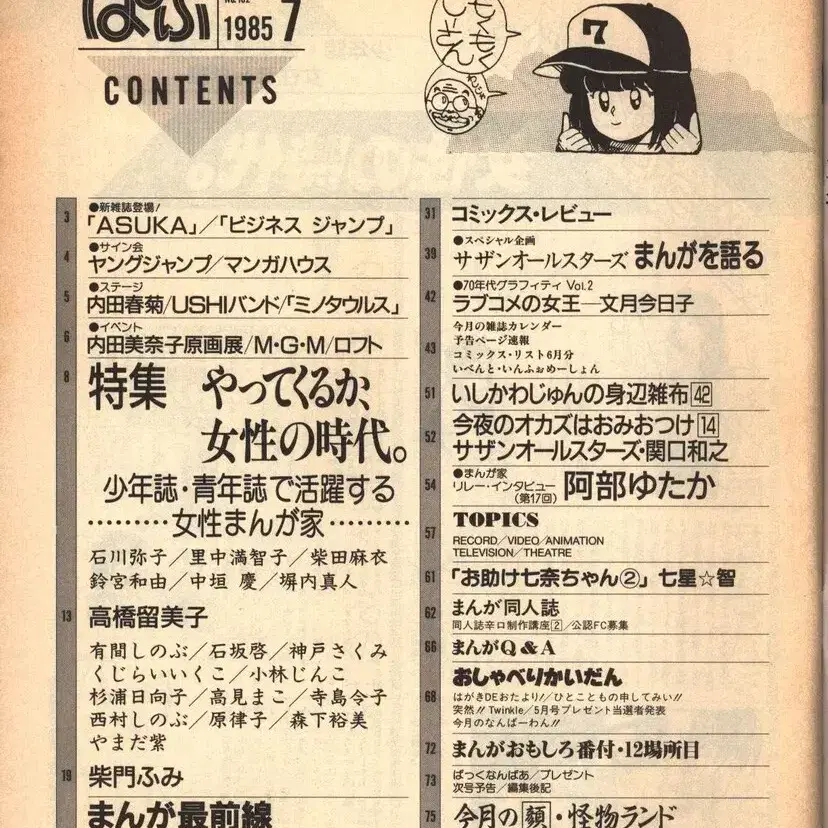 ぱふ
No.102
1985 7
CONTENTS
もくもく
じーさん
7
3
●新雑誌登場!
「ASUKA」/「ビジネス ジャンプ」
4
●サイン会
ヤングジャンプ/マンガハウス
5
●ステージ
内田春菊/USHIバンド/「ミノタウルス」
6
●イベント
内田美奈子原画展/M・G・M/ロフト
8
特集 やってくるか、
女性の時代。
少年誌・青年誌で活躍する
………女性まんが家………
石川弥子/里中満智子/柴田麻衣
鈴宮和由/中垣 慶/塀内真人
13
高橋留美子
有間しのぶ/石坂啓/神戸さくみ
くじらいいくこ/小林じんこ
杉浦日向子/高見まこ/寺島令子
西村しのぶ/原律子/森下裕美
やまだ紫
19
柴門ふみ
まんが最前線
31
コミックス・レビュー
39
●スペシャル企画
サザンオールスターズ まんがを語る
42
●70年代グラフィティ Vol.2
ラブコメの女王―文月今日子
43
今月の雑誌カレンダー
予告ページ速報
コミックス・リスト6月分
いべんと・いんふぉめーしょん
51
いしかわじゅんの身辺雑布 42
52
今夜のオカズはおみおつけ 14
サザンオールスターズ・関口和之
54
●まんが家
リレー・インタビュー
(第17回) 阿部ゆたか
57
TOPICS
RECORD/VIDEO/ANIMATION
TELEVISION/THEATRE
61
「お助け七奈ちゃん②」七星☆智
62
まんが同人誌
同人誌辛口制作講座2/公認FC募集
66
まんがQ&A
68
おしゃべりかいだん
はがきDEおたより!/ひとこともの申してみい!!
突然!! Twinkle/5月号プレゼント当選者発表
今月のなんばーわん!!
72
まんがおもしろ番付・12場所目
73
ばっくなんばあ/プレゼント
次号予告/編集後記
75
今月の顔・怪物ランド